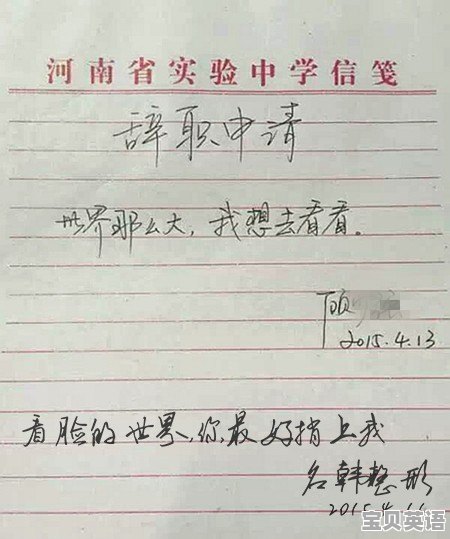 河南省实验中学信笺
辞职申请
世界那么大，我想去看看。
顾
2015.4.13
看脸的世界，你最好捎上我
名韩整形
2015.4.16
宝贝英语